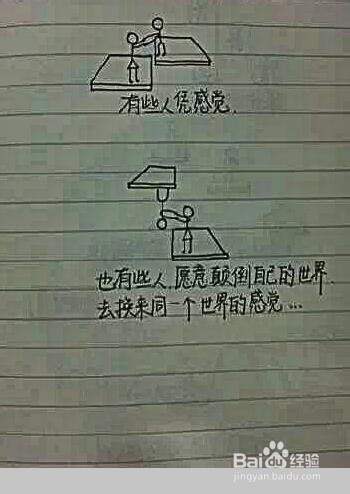 有些人凭感觉.
也有些人,愿意颠倒自己的世界.
去换来同一个世界的感觉...
Baidu经验
jingyan.baidu.com